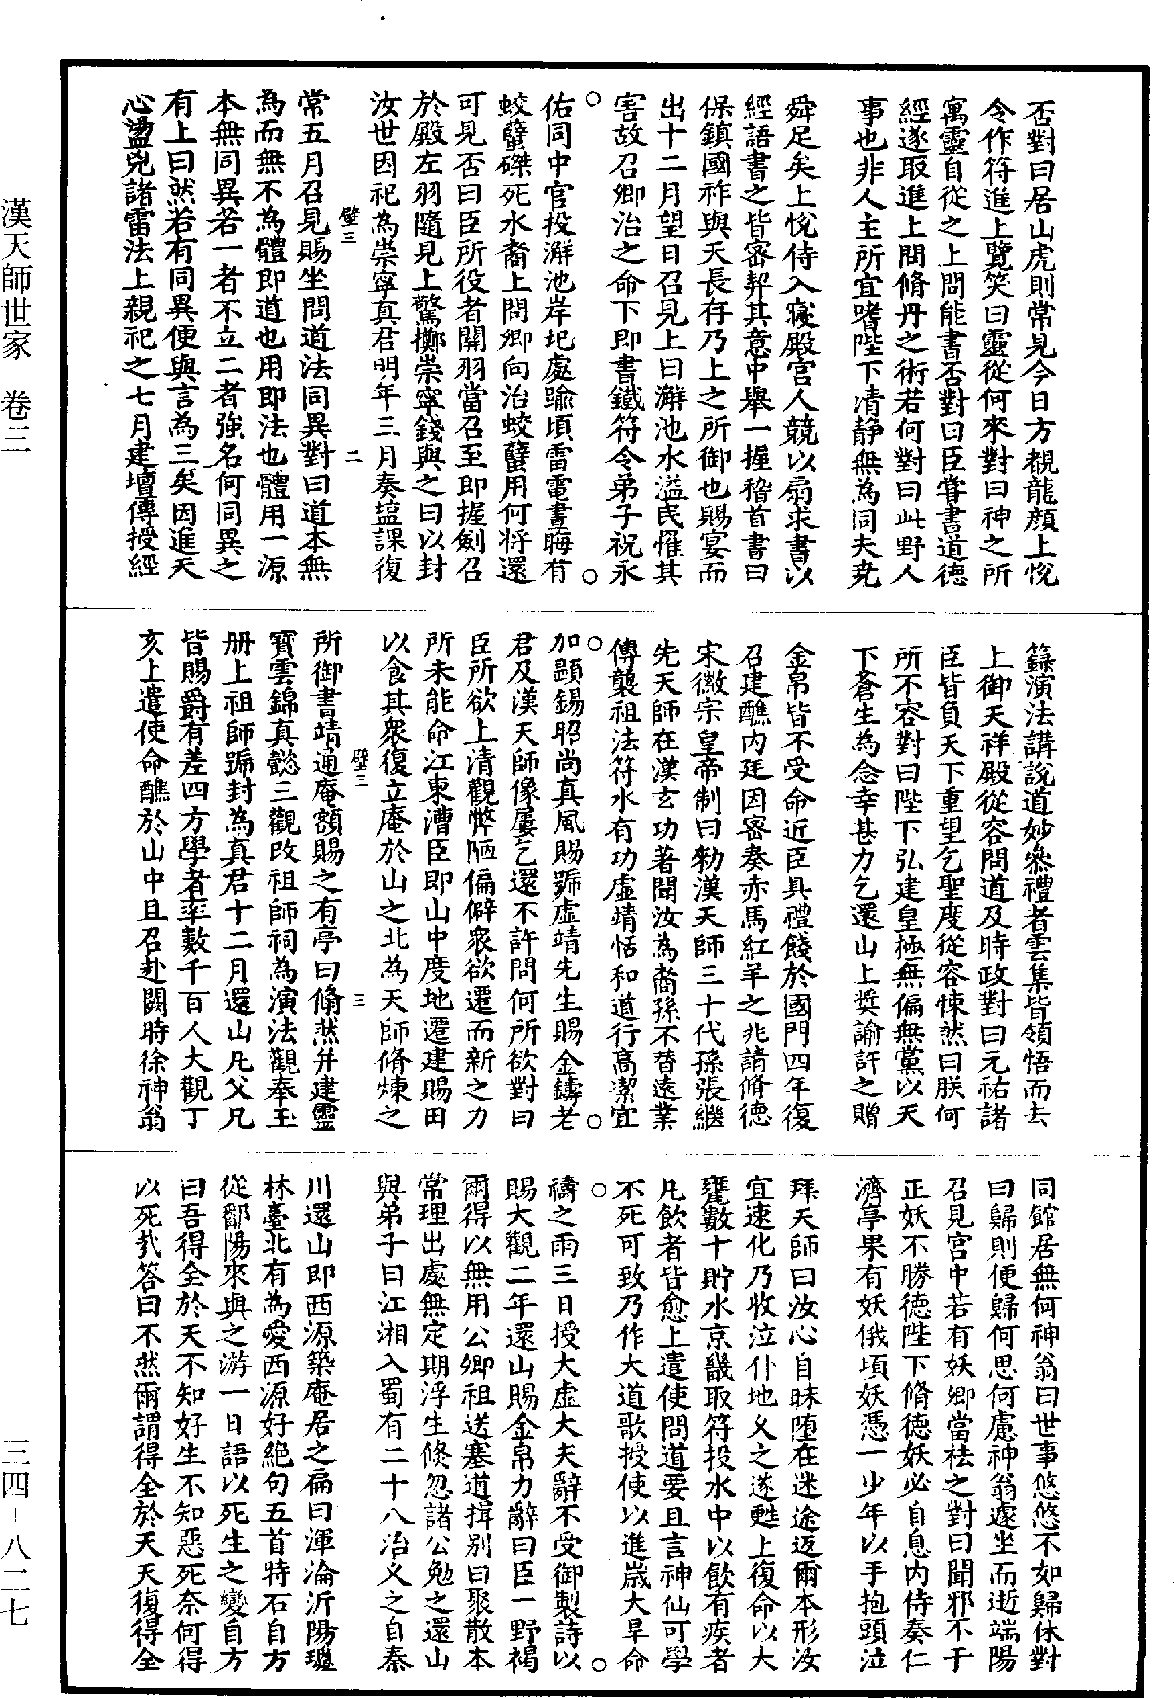 否對曰居山虎則常見今日方覩龍顏上悅
令作符進上覽笑曰靈從何來對曰神之所
寓靈自從之上問能書否對曰臣甞書道德
經遂取進上問脩丹之術若何對曰此野人
事也非人主所宜嗜陛下清靜無為同夫堯
舜足矣上悅侍入寢殿宮人競以扇求書以
經語書之皆密契其意中舉一握稽首書曰
保鎮國祚與天長存乃上之所御也賜宴而
出十二月望日召見上曰澥池水溢民罹其
害故召卿治之命下即書鐵符令弟子祝永
佑同中官投澥池岸圯處踰頃雷電晝晦有
蛟蠥磔死水裔上問卿向治蛟蠥用何將還
可見否曰臣所役者關羽當召至即握劍召
於殿左羽隨見上驚擲崇寧錢與之曰以封
汝世因祀為崇寧真君明年三月奏塩課復
壁三
二
常五月召見賜坐問道法同異對曰道本無
為而無不為體即道也用即法也體用一源
本無同異若一者不立二者強名何同異之
有上曰然若有同異便與言為三矣因進天
心盪兇諸雷法上親祀之七月建壇傳授經
籙演法講說道妙叅禮者雲集皆領悟而去
上御天祥殿從容問道及時政對曰元祐諸
臣皆負天下重望乞聖度從容悚然曰朕何
所不容對曰陛下弘建皇極無偏無黨以天
下蒼生為念幸甚力乞還山上奬諭許之贈
金帛皆不受命近臣具禮餞於國門四年復
召建醮内廷因密奏赤馬紅羊之兆請脩德
宋徽宗皇帝制曰勑漢天師三十代孫張繼
先天師在漢玄功著聞汝為裔孫不替遠業
傳襲祖法符水有功虛靖恬和道行高潔宜
加顯錫昭尚真風賜號虛靖先生賜金鑄老
君及漢天師像屢乞還不許問何所欲對曰
臣所欲上清觀弊陋偏僻衆欲遷而新之力
所未能命江東漕臣即山中度地遷建賜田
以食其衆復立庵於山之北為天師脩煉之
壁三
三
所御書靖通庵額賜之有亭曰翛然并建靈
寳雲錦真懿三觀改祖師祠為演法觀奉玉
册上祖師號封為真君十二月還山凡父兄
皆賜爵有差四方學者率數千百人大觀丁
亥上遣使命醮於山中且召赴闕時徐神翁
同館居無何神翁曰世事悠悠不如歸休對
曰歸則便歸何思何慮神翁遽坐而逝端陽
召見宮中若有妖卿當祛之對曰聞邪不干
正妖不勝德陛下脩德妖必自息内侍奏仁
濟亭果有妖俄頃妖憑一少年以手抱頭泣
拜天師曰汝心自昧堕在迷途返爾本形汝
宜速化乃收泣仆地乂之遂甦上復命以大
甕數十貯水京畿取符投水中以飲有疾者
凡飲者皆愈上遣使問道要且言神仙可學
不死可致乃作大道歌授使以進嵗大旱命
禱之雨三日授太虛大夫辭不受御製詩以
賜大觀二年還山賜金帛力辭曰臣一野褐
爾得以無用公卿祖送塞道揖别曰聚散本
常理出處無定期浮生倏忽諸公勉之還山
與弟子曰江湘入蜀有二十八治乂之自秦
川還山即西源築庵居之扁曰渾淪沂陽璣
林臺北有為愛西源好絶句五首特石自方
從鄱陽來與之游一日語以死生之變自方
曰吾得全於天不知好生不知惡死奈何得
以死㢤答曰不然爾謂得全於天天復得全
漢天師世家 卷三
三四－八二七